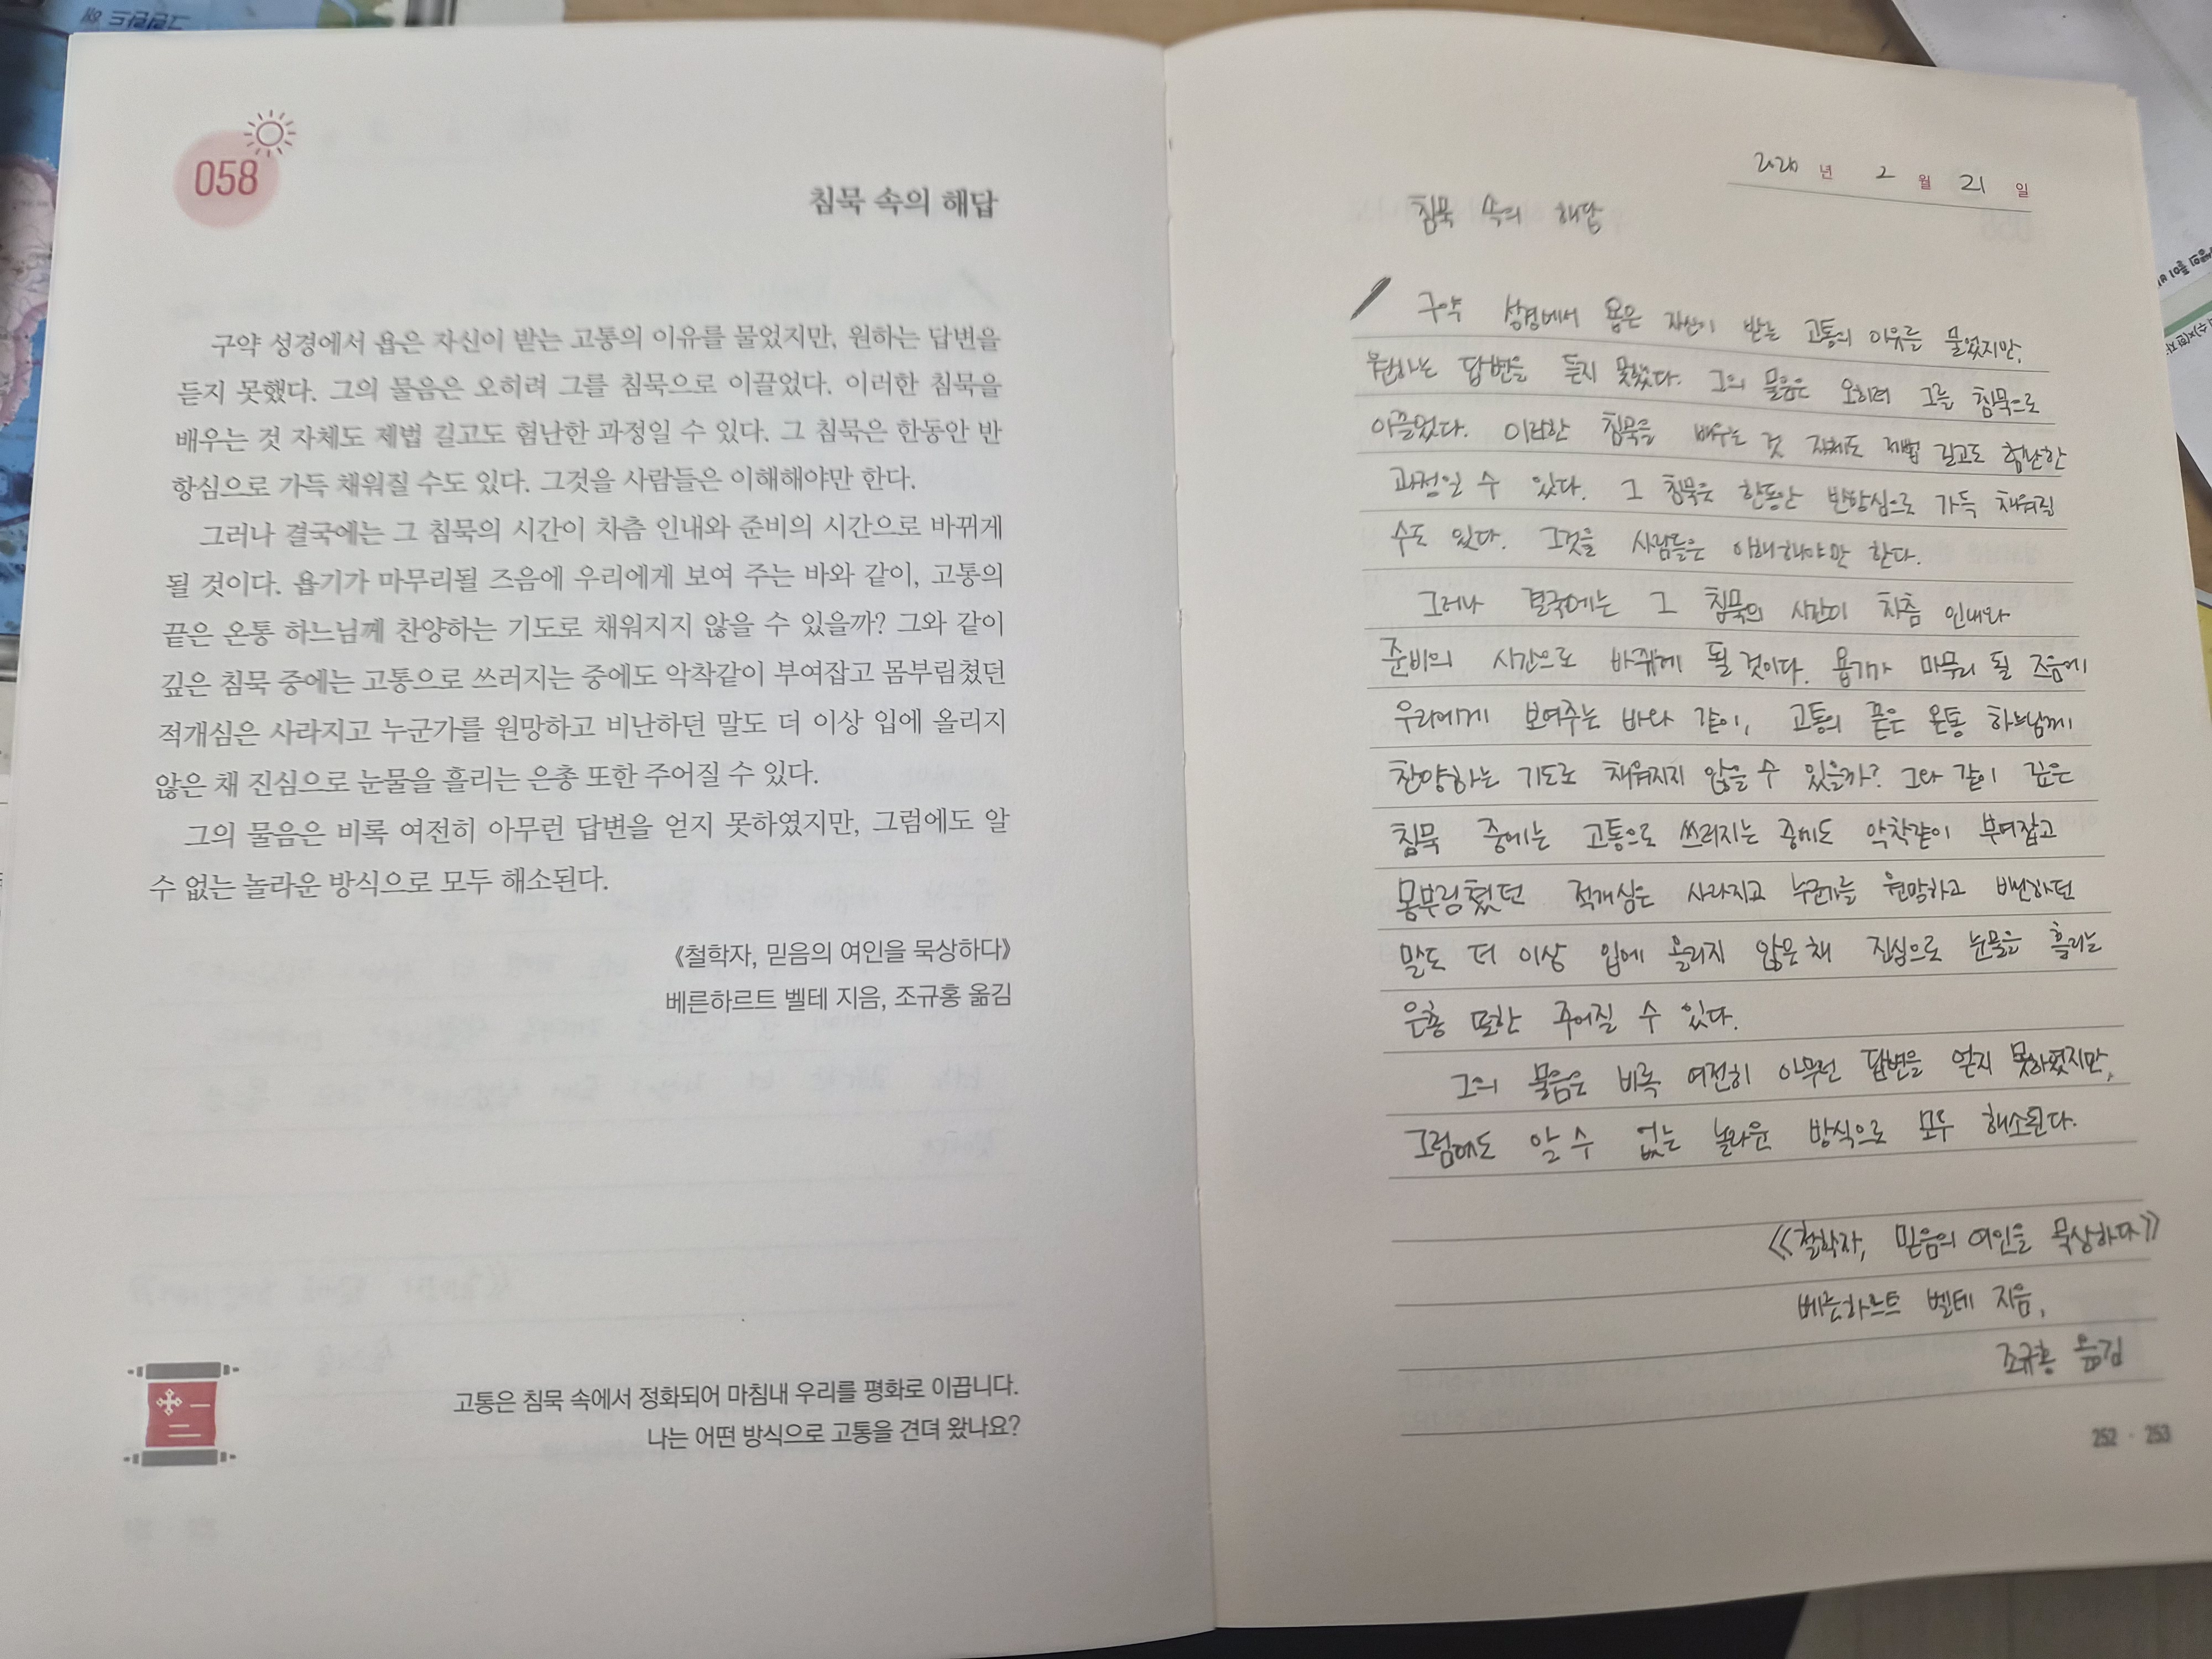 058
침묵 속의 해답
구약 성경에서 욥은 자신이 받는 고통의 이유를 물었지만, 원하는 답변을
듣지 못했다. 그의 물음은 오히려 그를 침묵으로 이끌었다. 이러한 침묵을
배우는 것 자체도 제법 길고도 험난한 과정일 수 있다. 그 침묵은 한동안 반
항심으로 가득 채워질 수도 있다. 그것을 사람들은 이해해야만 한다.
그러나 결국에는 그 침묵의 시간이 차츰 인내와 준비의 시간으로 바뀌게
될 것이다. 욥기가 마무리될 즈음에 우리에게 보여 주는 바와 같이, 고통의
끝은 온통 하느님께 찬양하는 기도로 채워지지 않을 수 있을까? 그와 같이
깊은 침묵 중에는 고통으로 쓰러지는 중에도 악착같이 부여잡고 몸부림쳤던
적개심은 사라지고 누군가를 원망하고 비난하던 말도 더 이상 입에 올리지
않은 채 진심으로 눈물을 흘리는 은총 또한 주어질 수 있다.
그의 물음은 비록 여전히 아무런 답변을 얻지 못하였지만, 그럼에도 알
수 없는 놀라운 방식으로 모두 해소된다.
《철학자, 믿음의 여인을 묵상하다》
베른하르트 벨테 지음, 조규홍 옮김
고통은 침묵 속에서 정화되어 마침내 우리를 평화로 이끕니다.
나는 어떤 방식으로 고통을 견뎌 왔나요?
년 2 월 21 일
침묵 속의 해답
구약 성경에서 욥은 자신이 받는 고통의 이유를 물었지만,
원하는 답변을 듣지 못했다. 그의 물음은 오히려 그를 침묵으로
이끌었다. 이러한 침묵을 배우는 것 자체도 제법 길고도 험난한
과정일 수 있다. 그 침묵은 한동안 반항심으로 가득 채워질
수도 있다. 그것을 사람들은 이해해야만 한다.
그러나 결국에는 그 침묵의 시간이 차츰 인내와
준비의 시간으로 바뀌게 될 것이다. 욥기가 마무리 될 즈음에
우리에게 보여주는 바와 같이, 고통의 끝은 온통 하느님께
찬양하는 기도로 채워지지 않을 수 있을까? 그와 같이 깊은
침묵 중에는 고통으로 쓰러지는 중에도 악착같이 부여잡고
몸부림쳤던 적개심은 사라지고 누군가를 원망하고 비난하던
말도 더 이상 입에 올리지 않은 채 진심으로 눈물을 흘리는
은총 또한 주어질 수 있다.
그의 물음은 비록 여전히 아무런 답변을 얻지 못하였지만,
그럼에도 알 수 없는 놀라운 방식으로 모두 해소된다.
《철학자, 믿음의 여인을 묵상하다》
베른하르트 벨테 지음,
조규홍 옮김
252 · 253